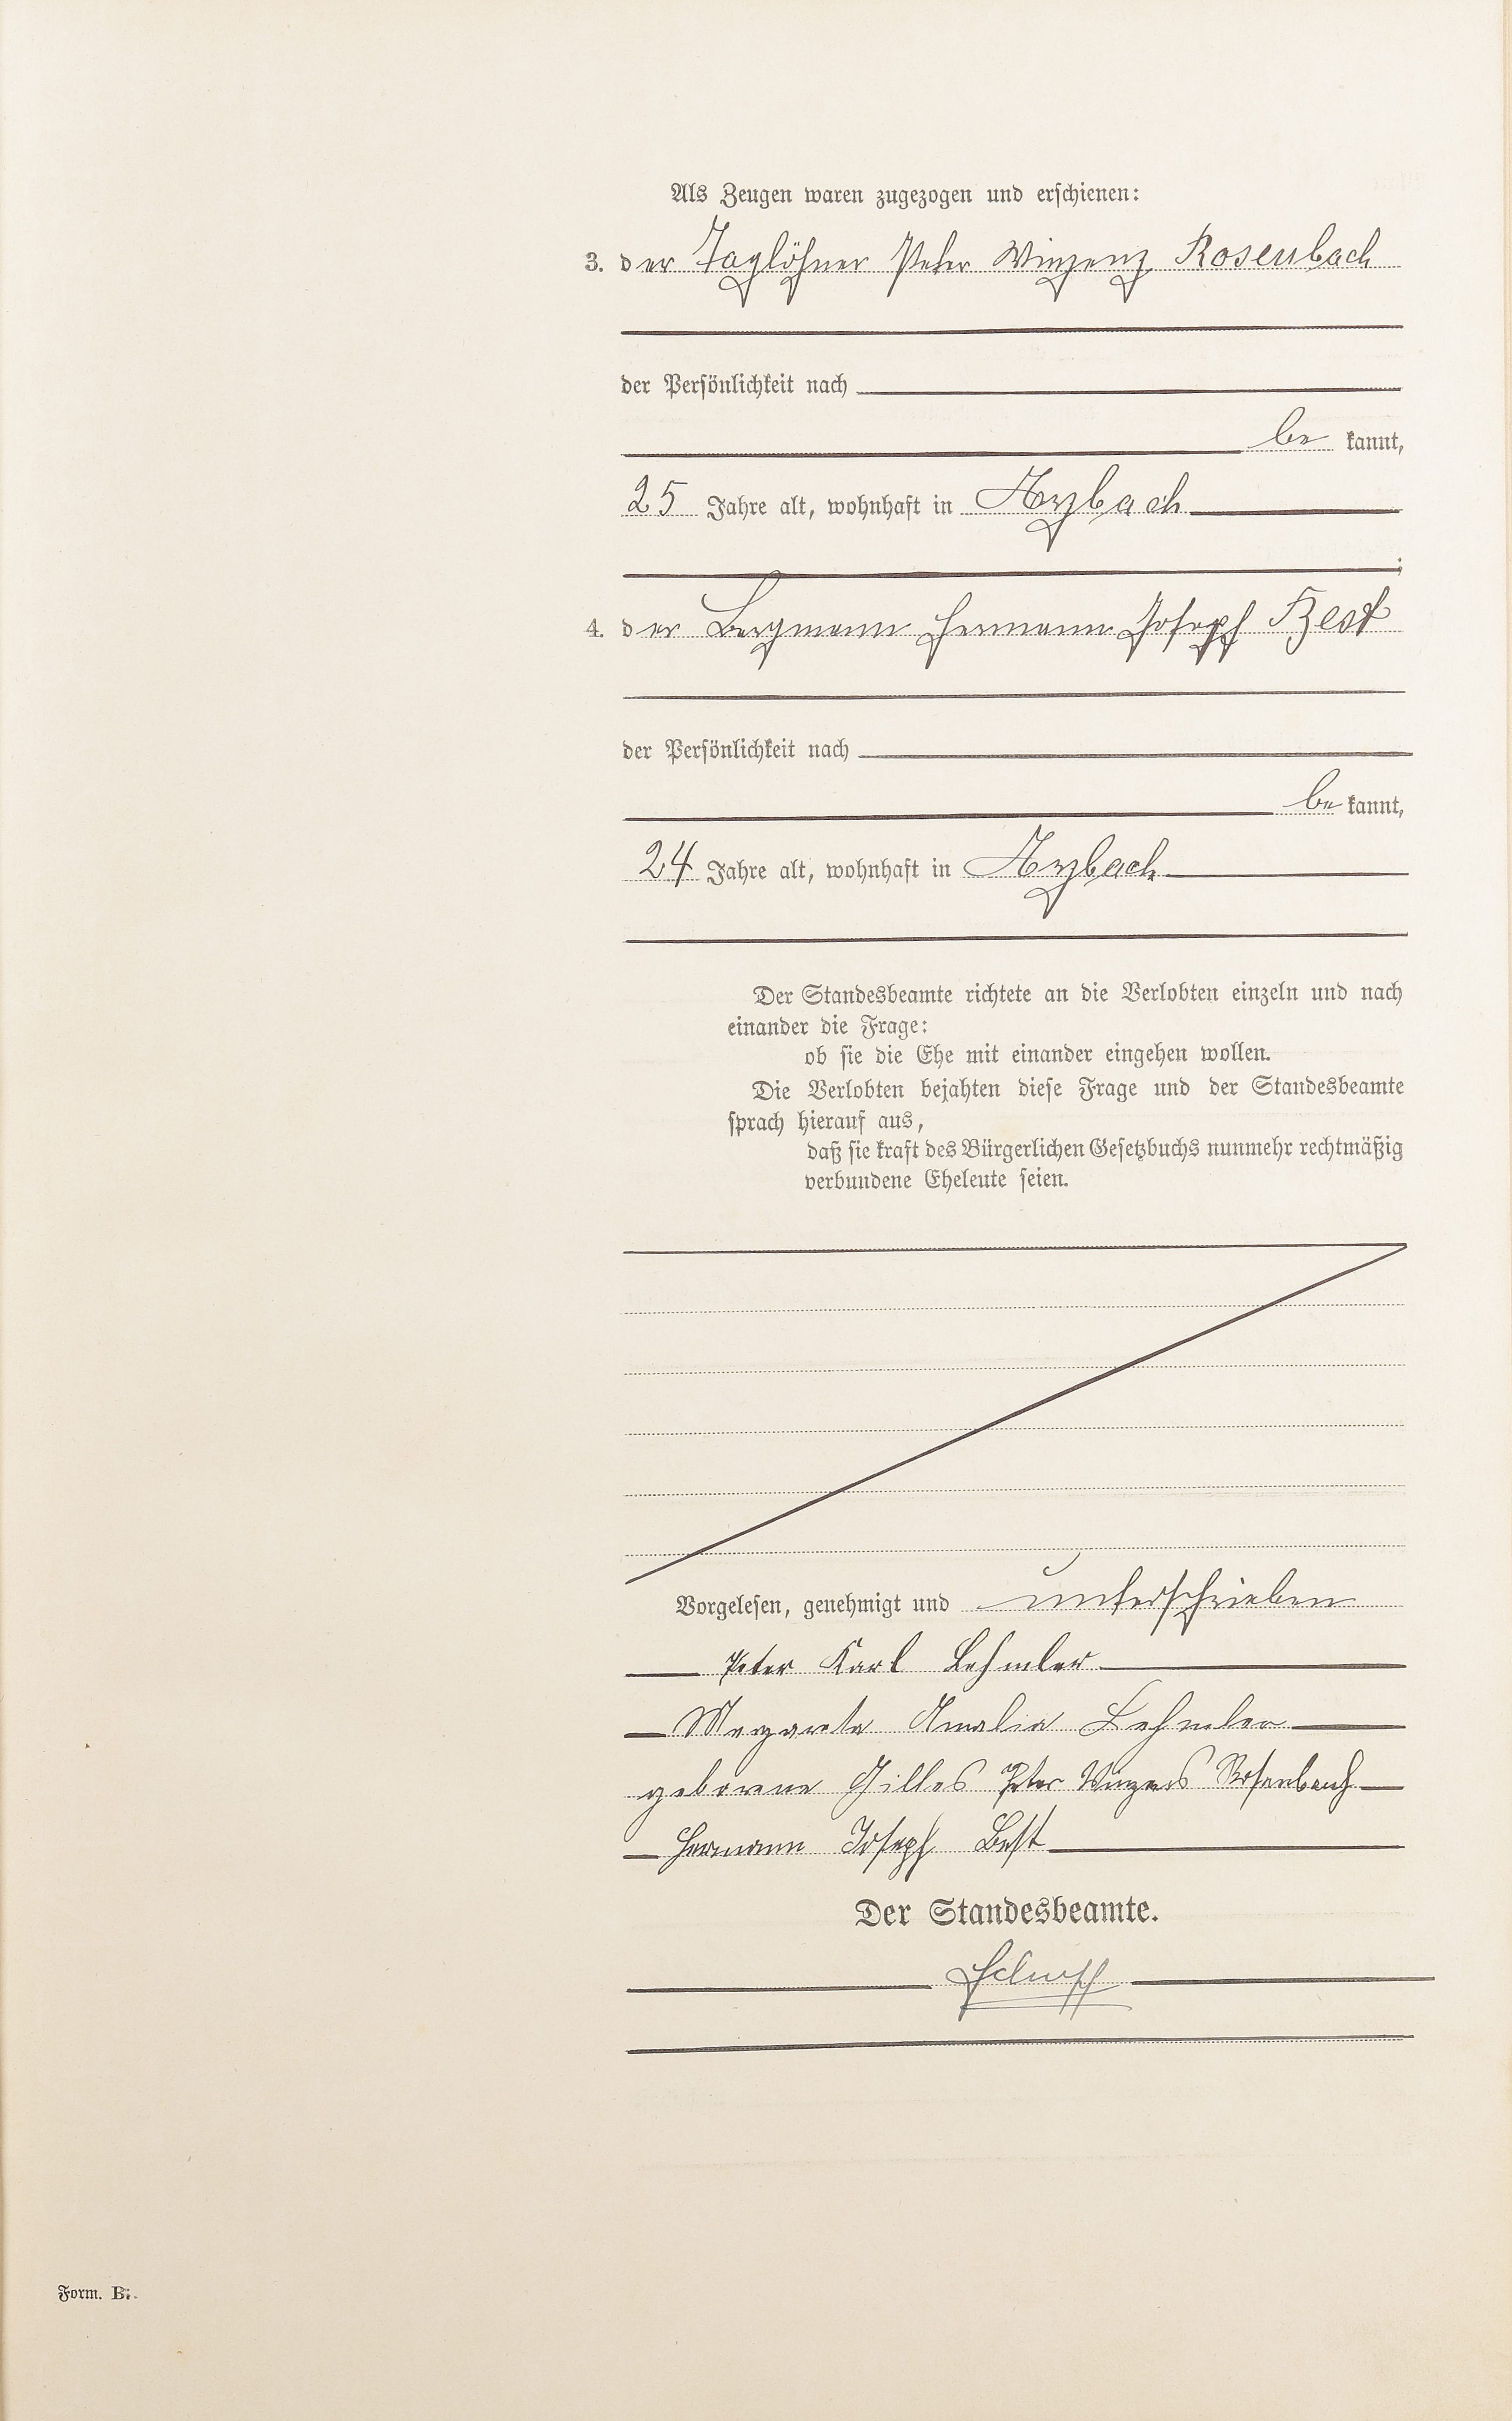 Als Zeugen waren zugezogen und erschienen:
3. der Taglöhner Peter Winzenz Rosenbach
der Persönlichkeit nach
be kannt,
25 Jahre alt, wohnhaft in Arzbach
;
4. der Bergmann Hermann Joseph Best
der Persönlichkeit nach
be kannt,
24 Jahre alt, wohnhaft in Arzbach
Der Standesbeamte richtete an die Verlobten einzeln und nach
einander die Frage:
ob sie die Ehe mit einander eingehen wollen.
Die Verlobten bejahten diese Frage und der Standesbeamte
sprach hierauf aus,
daß sie kraft des Bürgerlichen Gesetzbuchs nunmehr rechtmäßig
verbundene Eheleute seien.
Vorgelesen, genehmigt und unterschrieben
Peter Karl Lehmler
Margareta Amalia Lehmler
geborene Gilles Peter Winzens Rosenbach
Hermann Joseph Best
Der Standesbeamte.
Form. B.